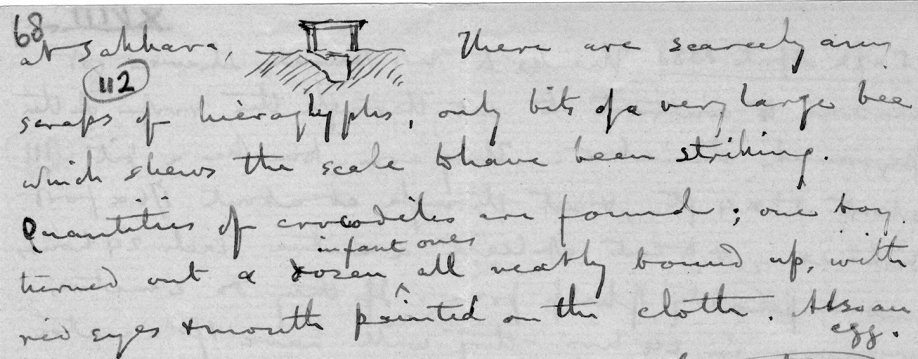 68
at Sakkara, There are scarcely any
112
scraps of hieroglyphs, only bits of a very large bee
which shews the scale to have been striking.
Quantities of crocodiles are found; one boy
infant ones
turned out a dozen ^ all neatly bound up, with
red eyes & mouth painted on the cloth. Also an
egg.